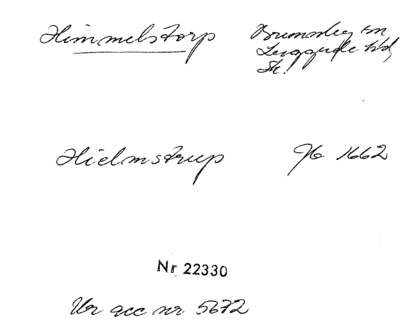 Himmelstorp
Brunnby sn
Luggude hd,
Sk.
Hielmstrup
Jb 1662
Nr 22330
Ur acc nr 5672